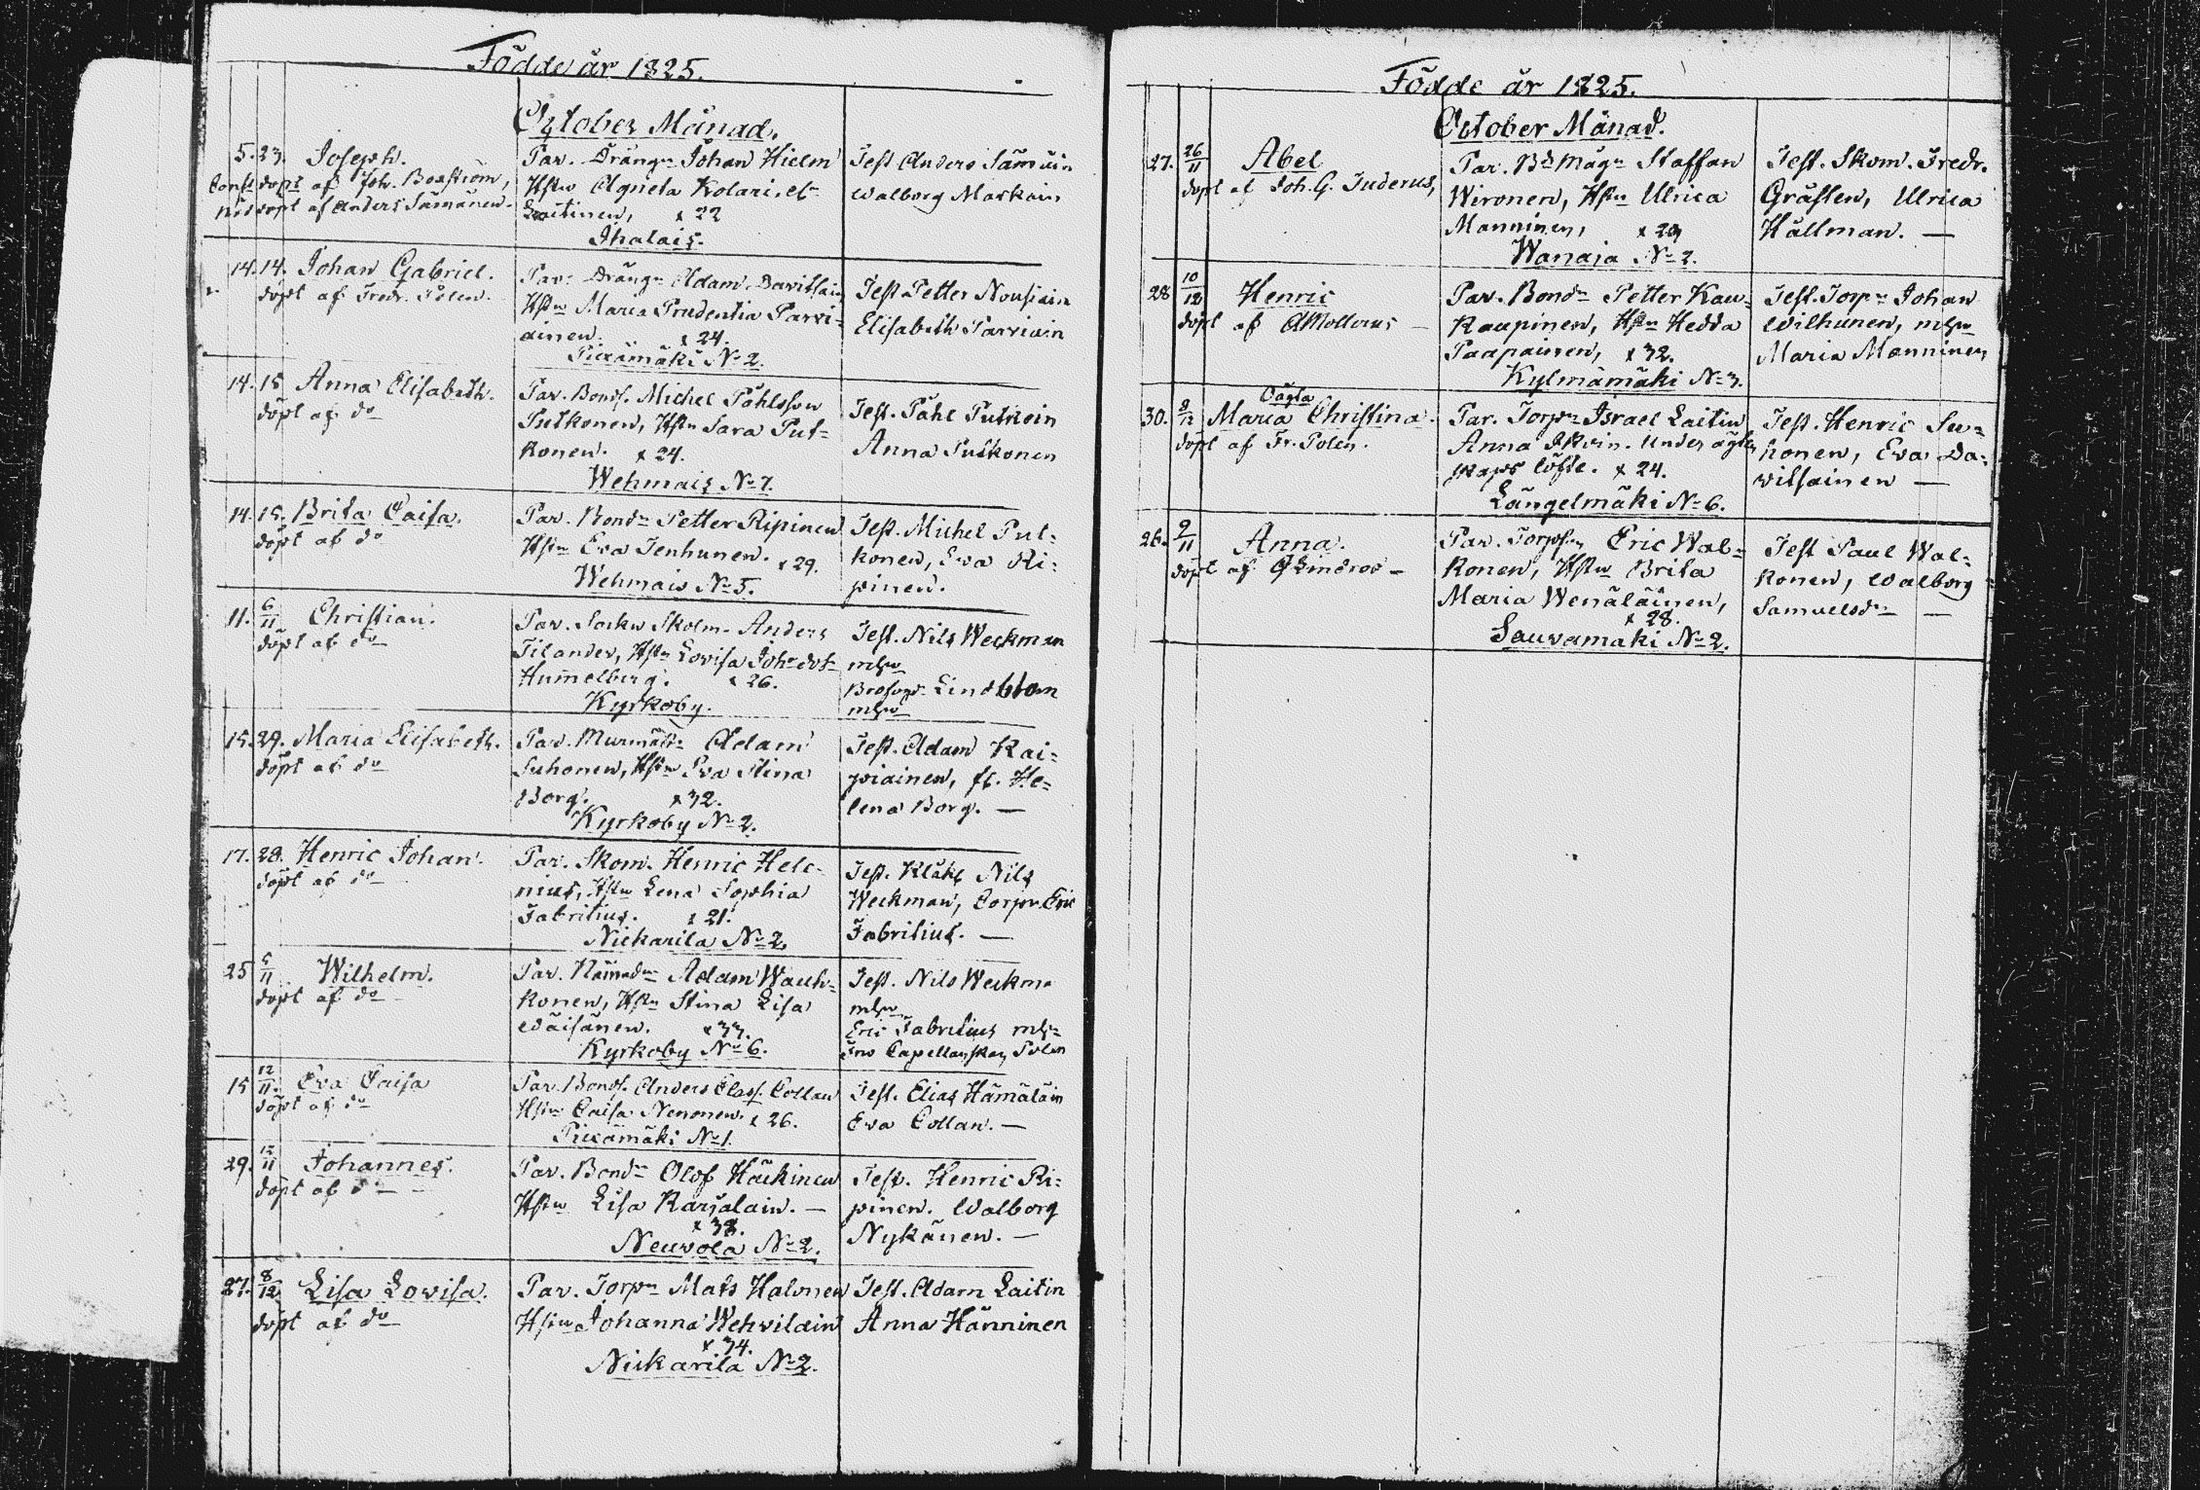 Födde år 1825.
October Månad.
5. 23. Joseph.
dopt af Joh. Boström,
nöddopt af Anders Sämänen.
Par. Drängn Johan Hielm
Hstru Agneta Kolari, et
Laitinen, x 22
Ihalais.
Test Anders Sämäin
Walborg Maskain
14. 14. Johan Gabriel.
döpt af Fredr. Polen.
Par. Drängn Adam Davitsain
Hstru Maria Prudentia Parvi=
ainen. x 24.
Piexämäki No 2.
Test Petter Nousiain
Elisabeth Parviain
14. 15 Anna Elisabeth.
döpt af do
Par. Bonds. Michel Påhlsson
Putkonen, Hstru Sara Put=
konen. x 24.
Wehmais No 7.
Test. Påhl Putkoin
Anna Putkonen
14. 15. Brita Caisa.
döpt af do
Par. Bondn Petter Ripinen
Hstru Eva Tenhunen. x 29.
Wehmais No 5.
Test. Michel Put=
konen, Eva Ri=
pinen.
11. 6/11 Christian.
döpt af do
Par. Sockn Skolm. Anders
Tilander, Hstru Lovisa Joh. dotr
Hummelberg. x 26.
Kyrkoby.
Test. Nils Weckman
mhu
Lindblom
mhu
15. 29. Maria Elisabeth.
döpt af do
Par. Murmästn Adam
Suhonen, Hstru Eva Stina
Borg. x 32.
Kyrkoby No 2.
Test. Adam Kai=
piainen, fl. He=
lena Borg. —
17. 28. Henric Johan.
döpt af do
Par. Skom. Henric Hele=
nius, Hstru Lena Sophia
Fabritius. x 21.
Nickarila No 2.
Test. Klåk Nils
Weckman, Corpr. Eric
Fabritius. —
25 5/11 Wilhelm.
döpt af do
Par. Nämndn Adam Wauh=
konen, Hstru Stina Lisa
Wäisänen. x 33.
Kyrkoby No 6.
Test. Nils Weckma
mhu
Eric Fabritius mh=
Fru Capellanskan Polen
15 12/11. Eva Caisa
döpt af do
Par. Bonds. Anders Class. Collan
Hstru Caisa Nenonen. x 26.
Piexämäki No 1.
Test. Elias Hämäläin
Eva Collan. —
29. 12/11 Johannes.
döpt af do
Par. Bondn Olof Häckinen
Hstru Lisa Karjalain. —
x 38.
Neuvola No 2.
Test. Henric Ri=
pinen. Walborg
Nykänen. —
27. 8/12 Lisa Lovisa.
döpt af do
Par. Torpn Mats Halonen
Hstru Johanna Wehvilain
x. 34.
Nickarila No 2.
Test. Adam Laitin
Anna Hänninen
Födde år 1825.
October Månad.
27. 26/11 Abel
dopt af Joh. G. Juderus,
Par. Bd Mågn Staffan
Wironen, Hstru Ulrica
Manninen, x 29
Wanaja No 2.
Test. Skom. Fredr.
Gråsten, Ulrica
Hällman. —
28 10/12 Henric
döpt af AMollerus —
Par. Bondn Petter Kau=
Kaupinen, Hstru Hedda
Paapainen, x 32.
Kylmämäki No 3.
Test. Torpn Johan
Wilhunen, mhu
Maria Manninen
30. 9/12 Oägta
Maria Christina.
döpt af Fr. Polen.
Par. Torpn Israel Laitin
Anna Under ägten
skaps löfte. x 24.
Längelmäki No 6.
Test. Henric Su=
honen, Eva Da=
vitsainen —
26. 9/11 Anna.
dopt af —
Par. Torpsn Eric Wal=
konen, Hstru Brita
Maria Wenäläinen,
x 28.
Sauvamäki No 2.
Test Paul Wal=
konen, Walborg
Samuelsdr —